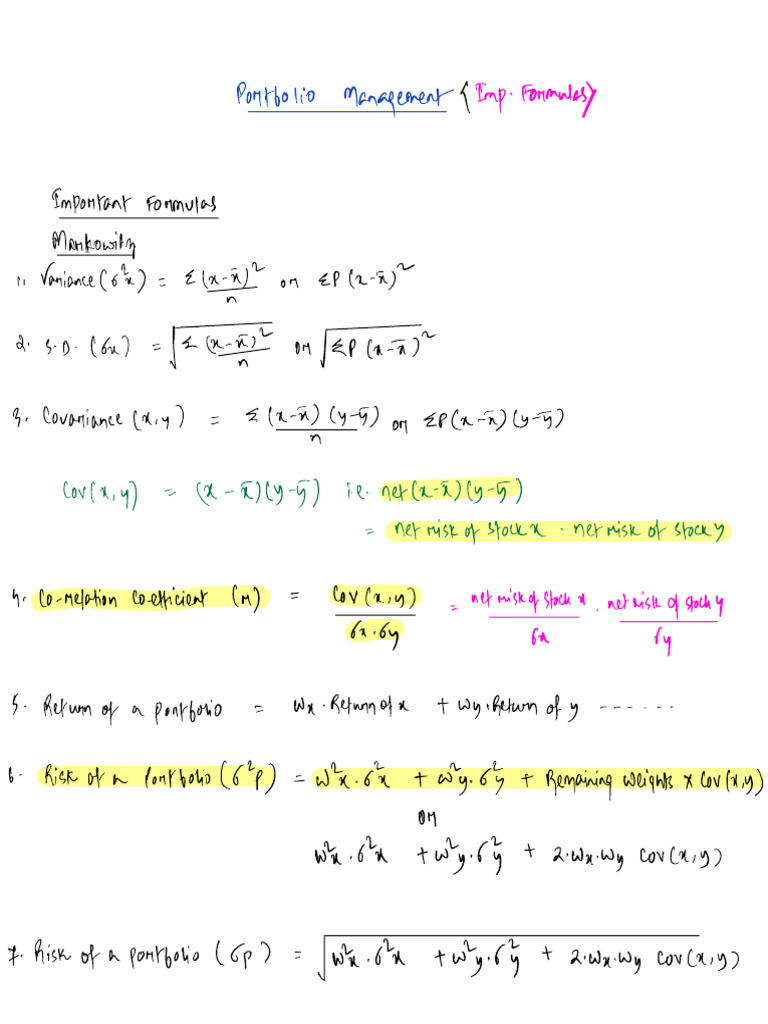 Portfolio Management {Imp. Formulas}
Important Formulas
Markowitz
1. Variance (σ²x) = Σ(x-x̄)²/n or ΣP(x-x̄)²
2. S.D. (σx) = √(Σ(x-x̄)²/n) or √(ΣP(x-x̄)²)
3. Covariance (x,y) = Σ(x-x̄)(y-ȳ)/n or ΣP(x-x̄)(y-ȳ)
Cov(x,y) = (x-x̄)(y-ȳ) i.e. net(x-x̄)(y-ȳ)
= net risk of stock x . net risk of stock y
4. Co-relation co-efficient (r) = Cov(x,y)/σx.σy = net risk of stock x/σx . net risk of stock y/σy
5. Return of a portfolio = Wx.Return of x + Wy.Return of y ------
6. Risk of a Portfolio (σ²p) = W²x.σ²x + W²y.σ²y + Remaining weights x Cov(x,y)
or
W²x.σ²x + W²y.σ²y + 2.Wx.Wy Cov(x,y)
7. Risk of a portfolio (σp) = √(W²x.σ²x + W²y.σ²y + 2.Wx.Wy Cov(x,y))